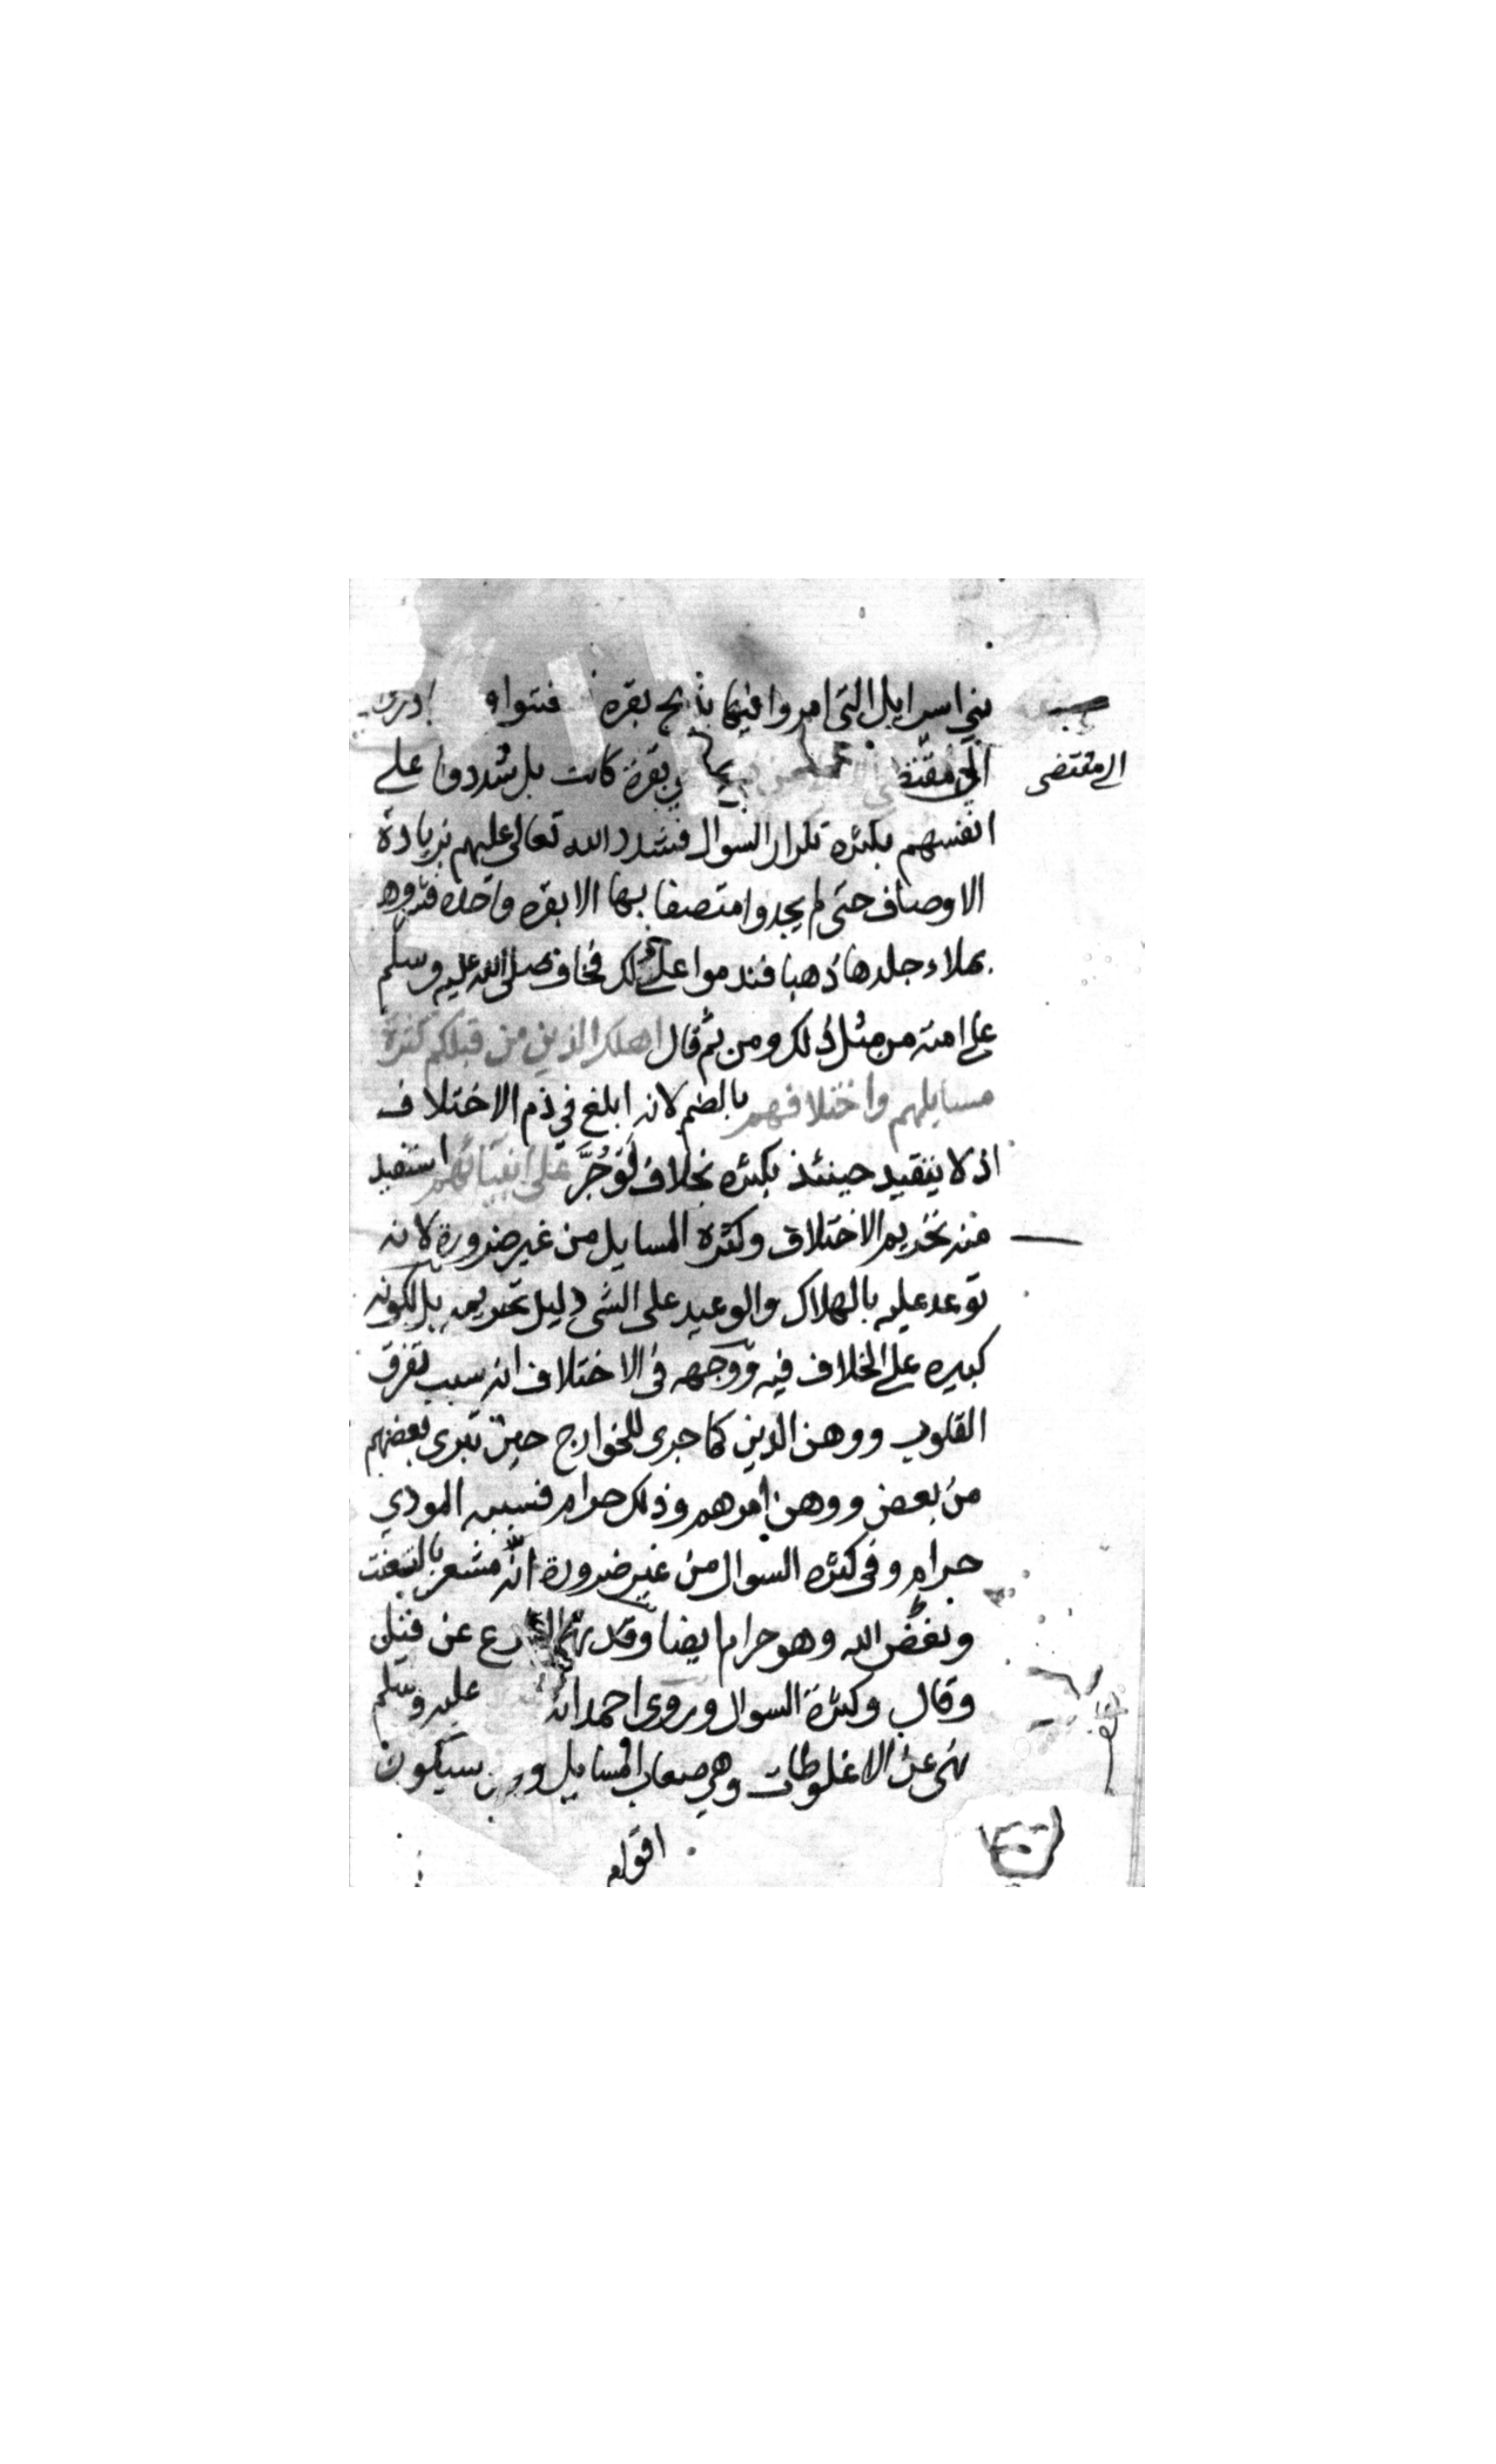 بني اسرايل التى امروا فيها بذبح بقرة
الي مقتضى بقرة كانت بل شددوا علے
الى مقتضى
انفسهم بكثره تكرار السوال فشدد الله تعالى عليهم بزيادة
الاوصاف حتى لم يجدوا متصفا بها الا بقره واحده
بملاء جلدها ذهبا فندموا على ذلك فخاف صلى الله عليه وسلم
على امته من مثل ذلك ومن ثم قال اهلك الذين من قبلكم كثرة
مسايلهم واختلافهم بالضم لانه ابلغ في ذم الاختلاف
اذ لا يتقيد حينئذ بكثره بخلاف لو جُرَّ على انبيائهم استفيد
منه تحريم الاختلاف وكثرة المسايل من غير ضرورة لانه
توعد عليه بالهلاك والوعيد على الشى دليل تحريمه بل لكونه
كبيره على الخلاف فيه ووجهه فى الاختلاف انه سبب تفرق
القلوب ووهن الدين كما جرى للخوارج حين تبرى بعضهم
من بعض ووهن امرهم وذلك حرام فسببه المودي
حرام وفى كثره السوال من غير ضرورة انه مشعر بالتعنت
وهو حرام ايضا وقد نهى عن قيل
وقال وكثرة السوال وروى احمد انه عليه وسلم
نهى عن الاغلوطات وهي صعاب المسايل سيكون
اقوام